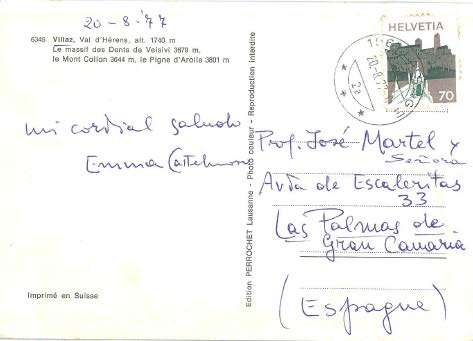 20-8-'77
6345 Villaz, Val d'Hérens, alt. 1740 m
Le massif des Dents de Veisivi 3679 m,
le Mont Collon 3644 m, le Pigne d'Arolla 3801 m
mi cordial saludo
Emma
Imprimé en Suisse
Edition PERROCHET Lausanne - Photo couleur - Reproduction interdite
HELVETIA
70
2a
Prof. José Martel y
Señora
Avda de Escaleritas
33
Las Palmas de
Gran Canaria
(Espagne)